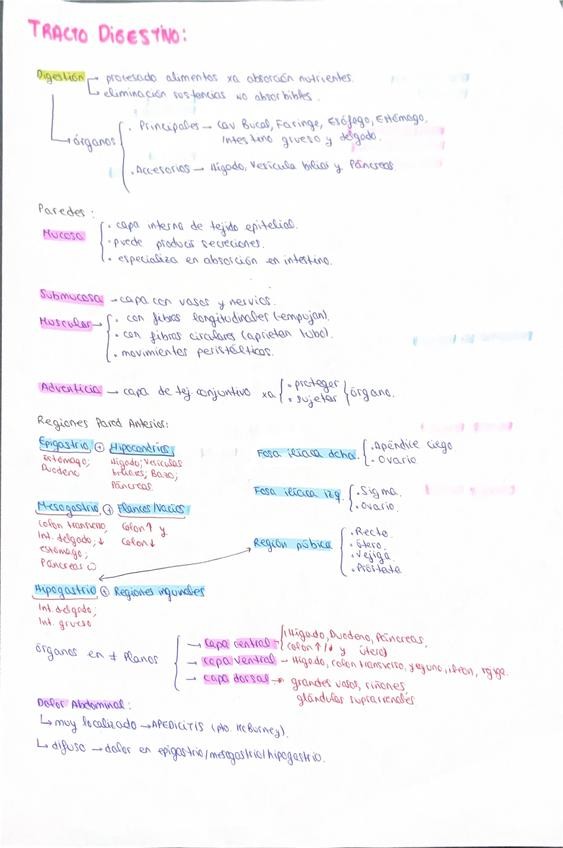 TRACTO DIGESTIVO:
Digestión → procesado alimentos xa absorción nutrientes.
→ eliminación sustancias no absorbibles.
→ órganos
· Principales → Cav Bucal, Faringe, Esófago, Estómago,
Intestino grueso y delgado.
· Accesorios → Hígado, Vesícula biliar y Páncreas
Paredes:
Mucosa
· capa interna de tejido epitelial.
· puede producir secreciones.
· especializa en absorción en intestino.
Submucosa → capa con vasos y nervios.
Muscular →
· con fibras longitudinales (empujan).
· con fibras circulares (aprietan tubo).
· movimientos peristálticos.
Adventicia → capa de tej conjuntivo xa · proteger · sujetar órgano.
Regiones Pared Anterior:
Epigastrio + Hipocondrios
Estómago, Duodeno
Hígado; Vesículas biliares; Bazo; Páncreas
Fosa ilíaca dcha. · Apéndice ciego · Ovario
Mesogastrio + Flancos/Vacíos
Colon transverso, Int. delgado, ↓ estómago; Páncreas
Colon ↑ y Colon ↓
Fosa ilíaca izq · Sigma. · Ovario.
Región púbica
· Recto.
· Útero.
· Vejiga.
· Próstata.
Hipogastrio + Regiones inguinales
Int. delgado,
Int. grueso
órganos en ≠ planos
→ capa central → Hígado, Duodeno, Páncreas, colon ↑/↓ y útero
→ capa ventral → Hígado, colon transverso, yeyuno, íleon, vejiga.
→ capa dorsal → grandes vasos, riñones
glándulas suprarrenales
Dolor Abdominal:
↳ muy localizado → APEDICITIS (pto. McBurney).
↳ difuso → dolor en epigastrio/mesogastrio/hipogastrio.